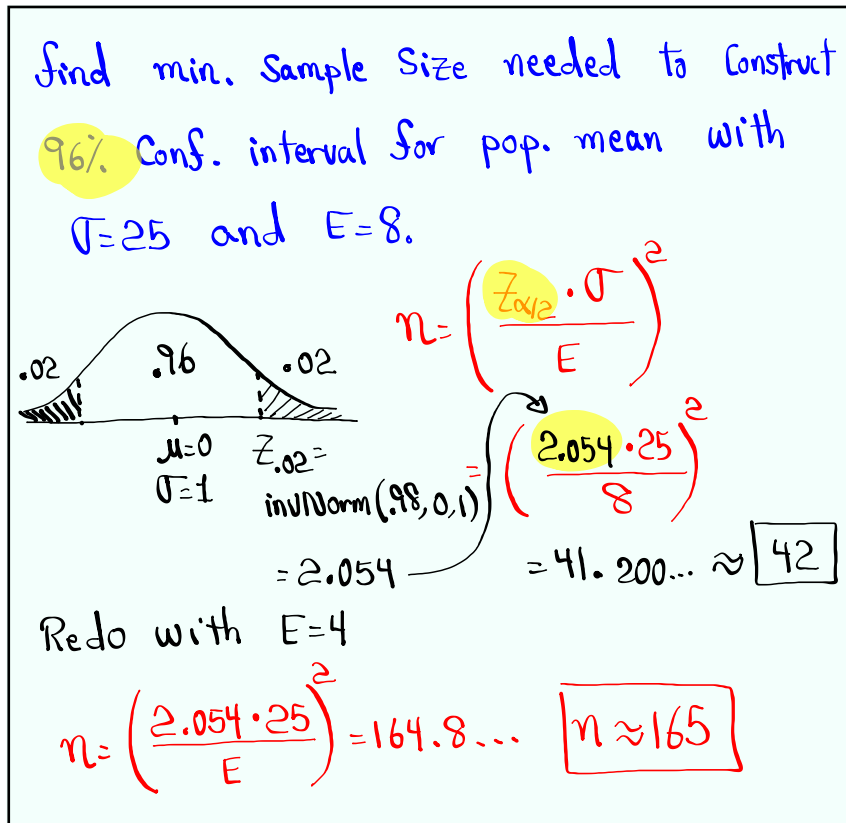 find min. Sample Size needed to Construct
96% Conf. interval for pop. mean with
σ=25 and E=8.
n= (Zα/2 · σ / E)²
.02 .96 .02
μ=0
σ=1
Z.02=
invNorm(.98,0,1)
=2.054
= (2.054·25 / 8)²
=41.200... ≈ 42
Redo with E=4
n= (2.054·25 / E)² =164.8... n≈165